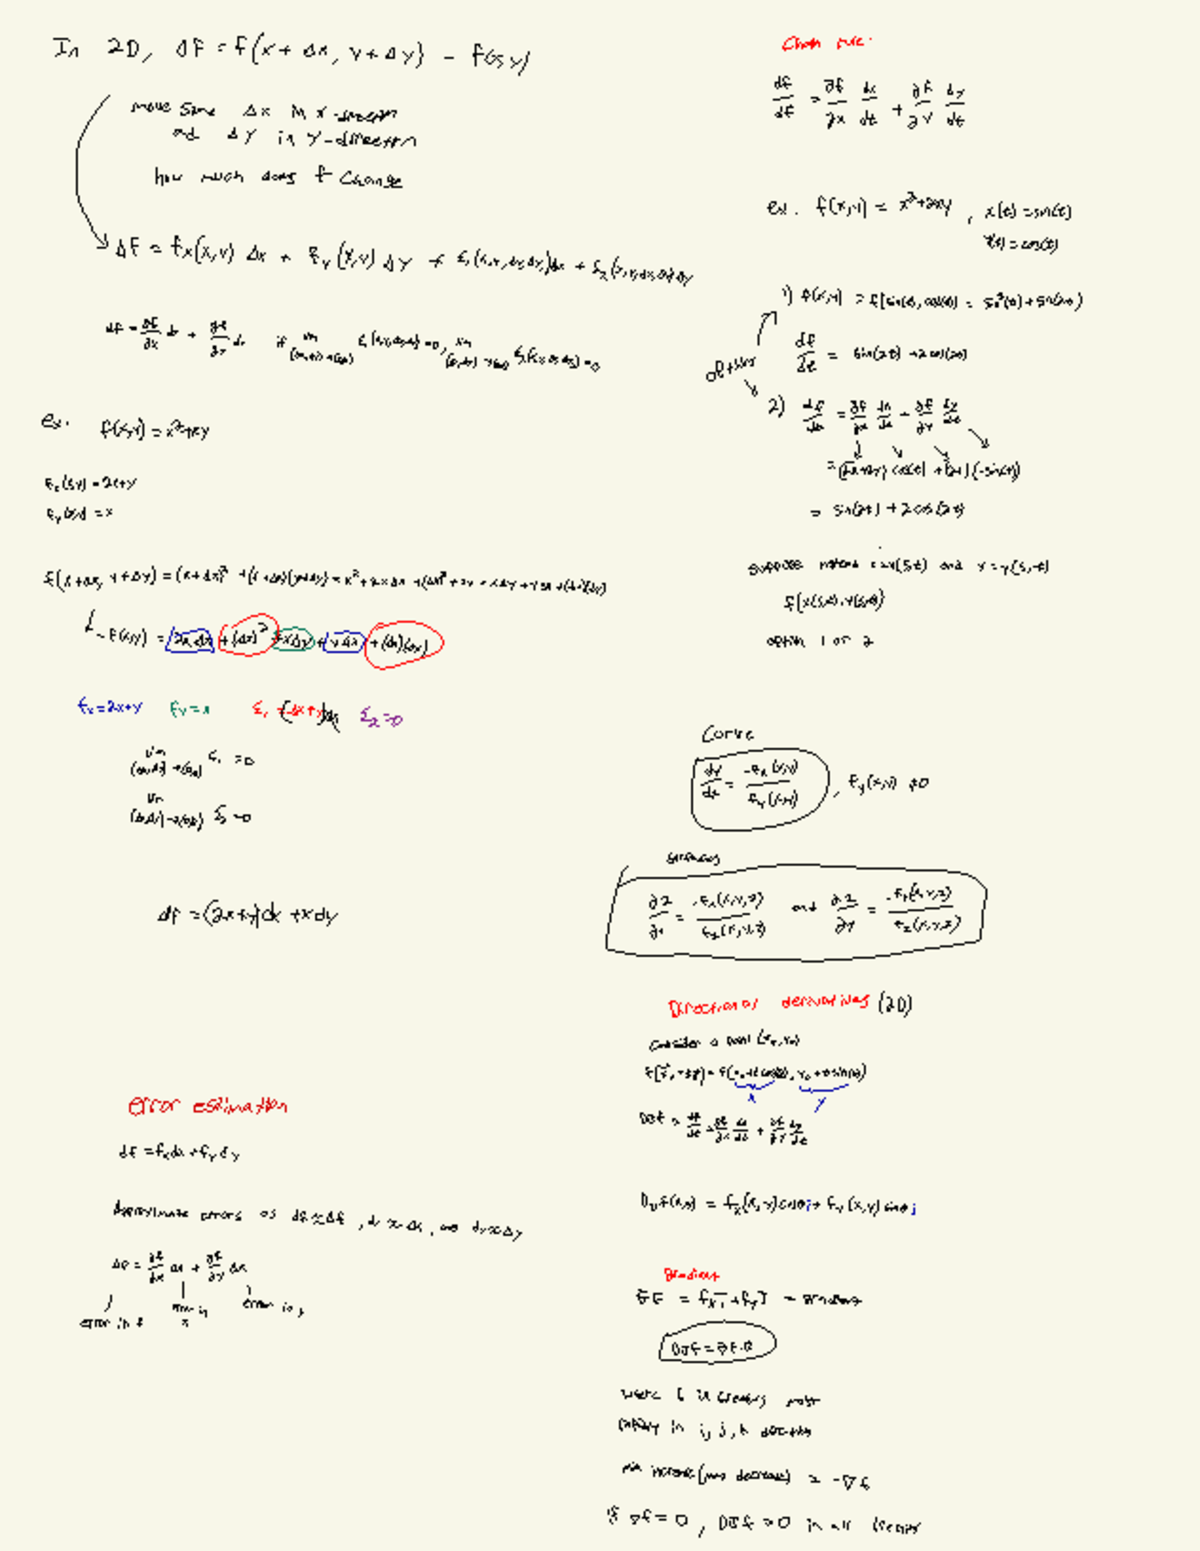 In 2D, ΔF = f(x + Δx, y + Δy) - f(x,y)
move some Δx in x-direction
and Δy in y-direction
how much does f change
ΔF = fx(x,y) Δx + fy(x,y) Δy + ε1(x,y,Δx,Δy)Δx + ε2(x,y,Δx,Δy)Δy
df = ∂f/∂x dx + ∂f/∂y dy if lim
ex. f(x,y) = x²+xy
fx(x,y) = 2x+y
fy(x,y) = x
f(x+Δx, y+Δy) = (x+Δx)² + (x+Δx)(y+Δy) = x² + 2xΔx + (Δx)² + xy + xΔy + yΔx + (Δx)(Δy)
- f(x,y) = 2xΔx + (Δx)² + xΔy + yΔx + (Δx)(Δy)
fx = 2x+y fy = x ε1 = ε2 = 0
lim (Δx,Δy)→(0,0) ε1 = 0
lim (Δx,Δy)→(0,0) ε2 = 0
df = (2x+y)dx + xdy
error estimation
df = fxdx + fydy
Approximate errors as df≈Δf, dx≈Δx, and dy≈Δy
Δf = ∂f/∂x Δx + ∂f/∂y Δx
error in f
error in x
error in y
Chain rule:
df/dt = ∂f/∂x dx/dt + ∂f/∂y dy/dt
ex. f(x,y) = x²+2xy, x(t) = sin(t)
y(t) = cos(t)
1) f(x,y) = f(sin(t), cos(t)) = sin²(t) + sin(2t)
df/dt = sin(2t) + 2cos(2t)
options
2) df/dt = ∂f/∂x dx/dt + ∂f/∂y dy/dt
= (2x+2y) cos(t) + (2x)(-sin(t))
= sin(2t) + 2cos(2t)
suppose instead x=x(s,t) and y=y(s,t)
f(x(s,t), y(s,t))
option 1 or 2
Curve
dy/dx = -fx(x,y)/fy(x,y), fy(x,y) ≠ 0
surfaces
∂z/∂x = -fx(x,y,z)/fz(x,y,z) and ∂z/∂y = -fy(x,y,z)/fz(x,y,z)
Directional derivatives (2D)
Consider a point (x0, y0)
x y
= df/dt = ∂f/∂x dx/dt + ∂f/∂y dy/dt
Duf(x,y) = fx(x,y)cosθi + fy(x,y)sinθj
gradient
∇f = fxi + fyj = gradient
Duf = ∇f·u
where f is increasing most
rapidly in i, j, k direction
min increase (max decrease) = -∇f
if ∇f = 0, Duf = 0 in all